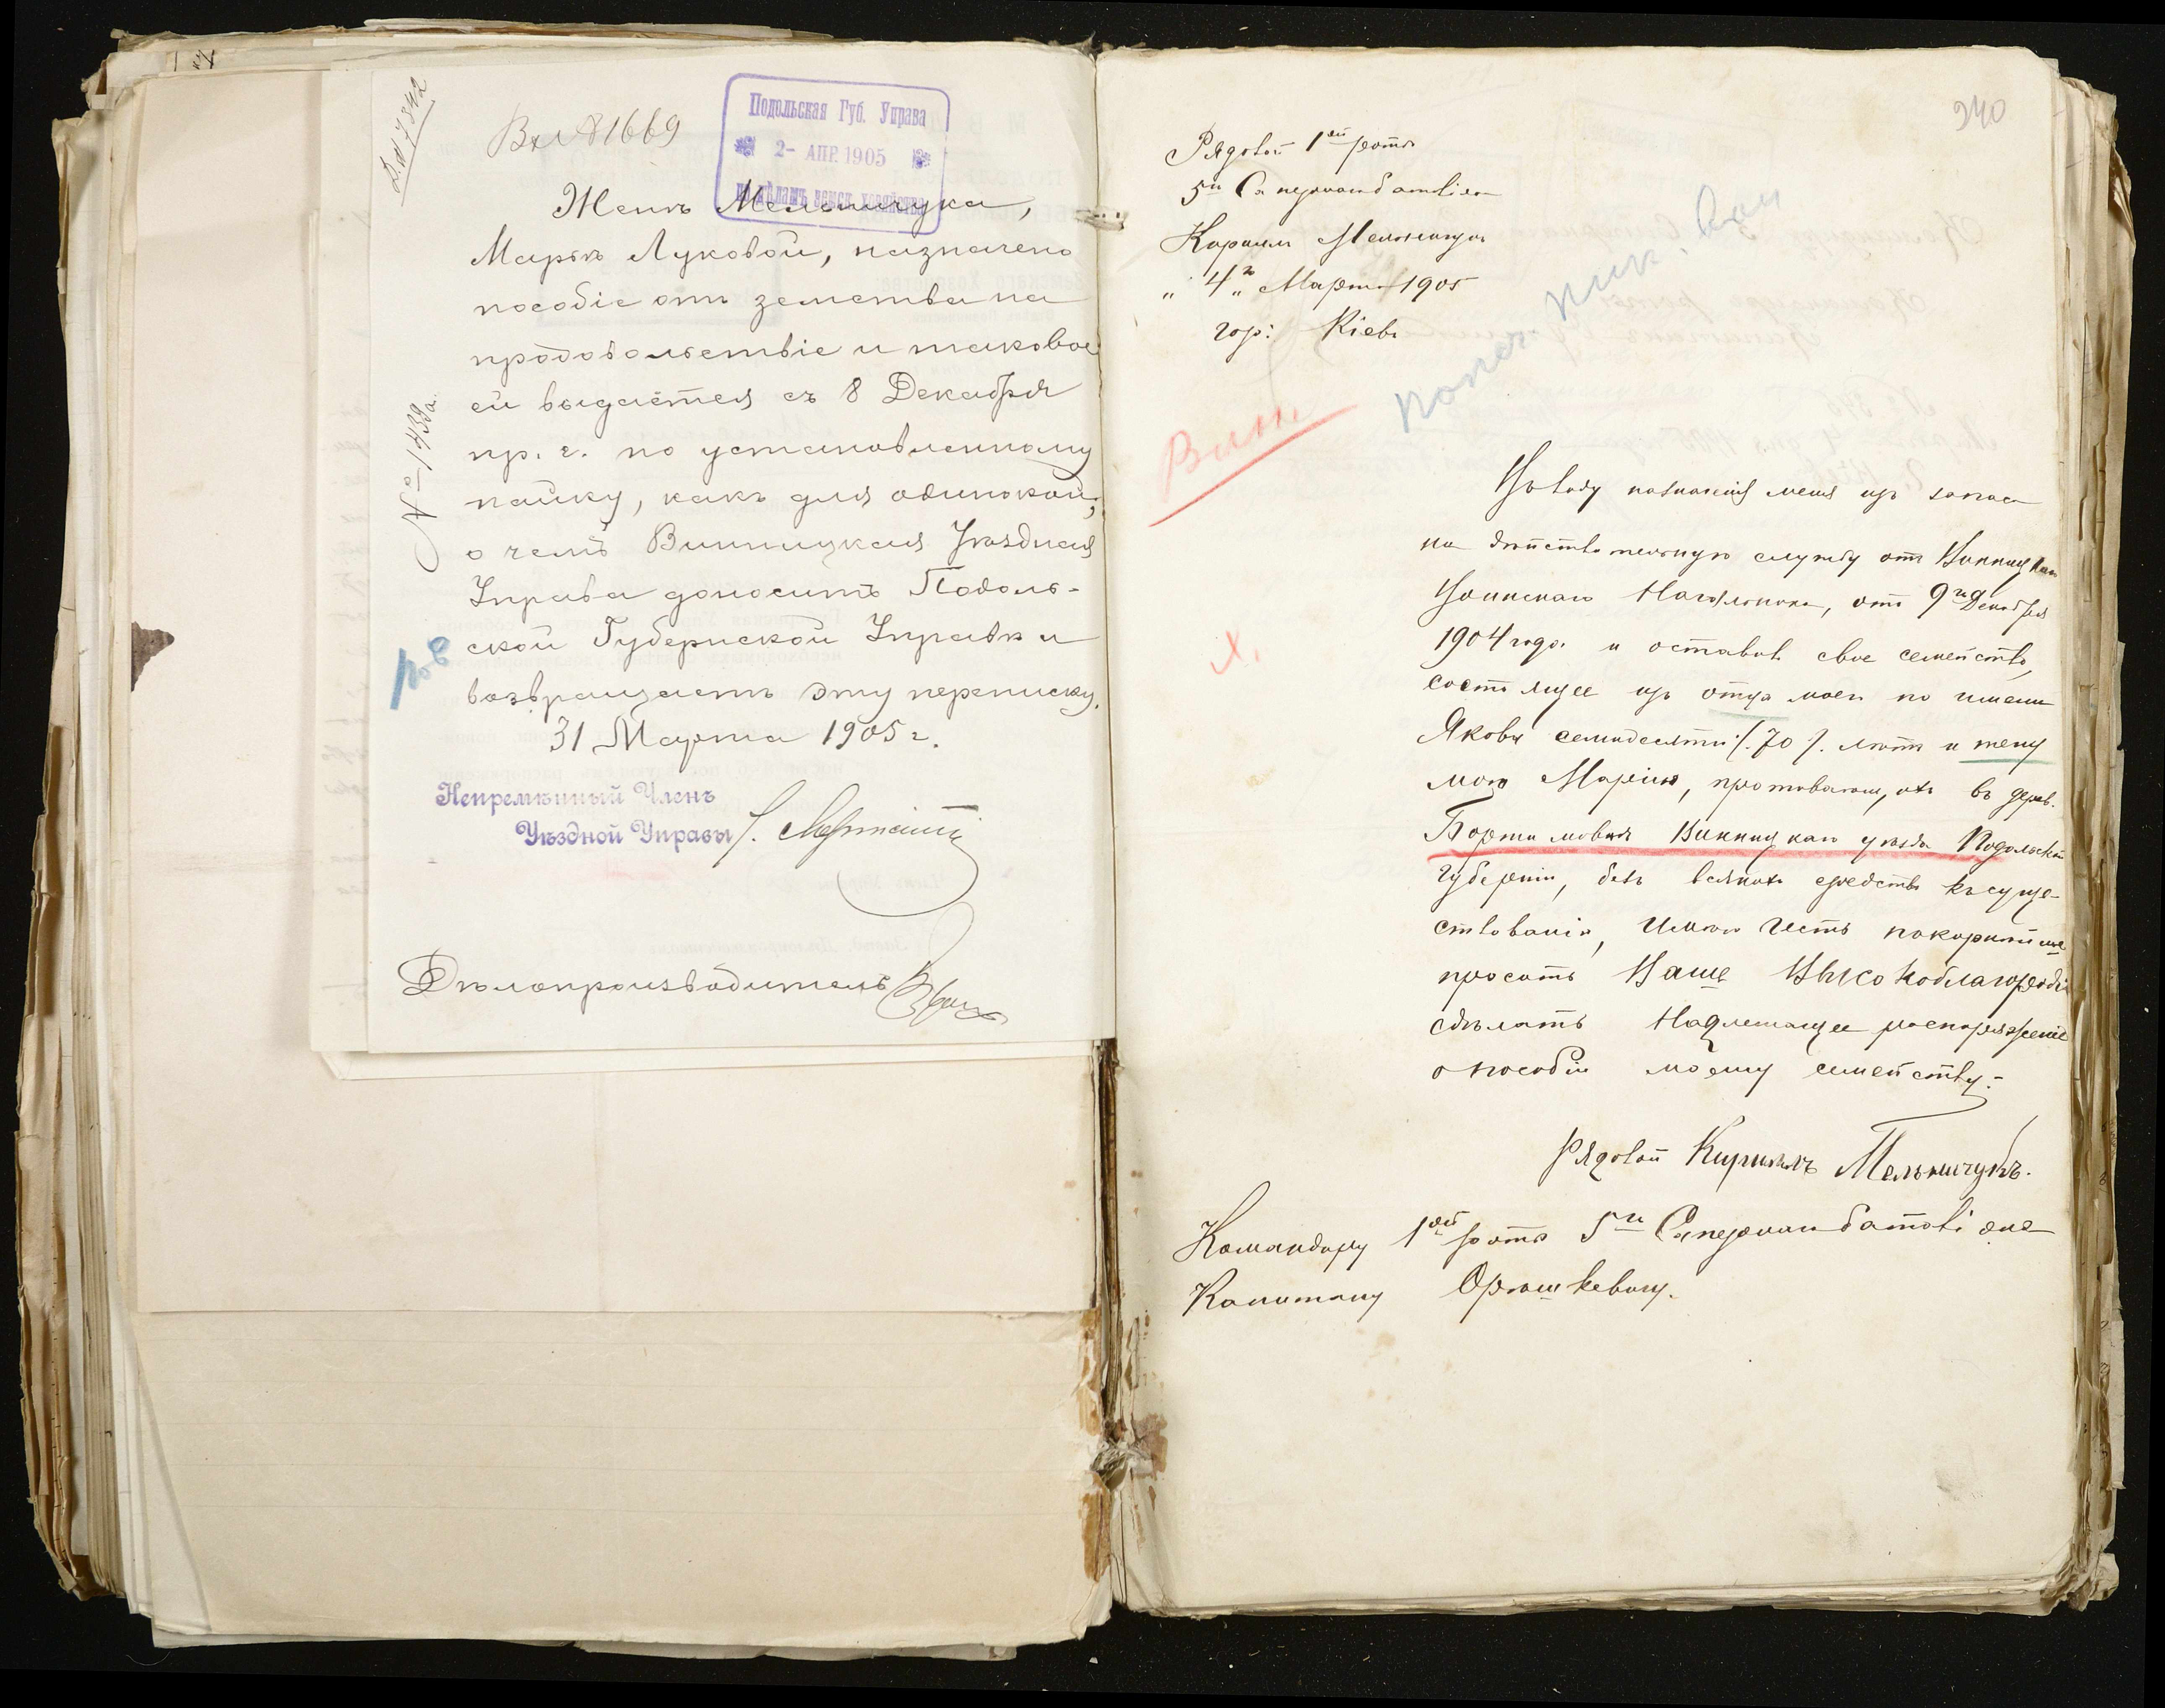 Вх № 1669
Подольская Губ. Управа
2- АПР. 1905
по дѣламъ земск. хозяйства
Женѣ Мельничука,
Марьѣ Луковой, назначено
пособіе отъ земства на
продовольствіе и таковое
ей выдаётся съ 8 Декабря
пр. г. по установленному
пайку, какъ для одинокой,
о чемъ Винницкая Уѣздная
Управа доноситъ Подоль-
ской Губернской Управѣ и
возвращаетъ эту переписку.
31 Марта 1905 г.
Непремѣнный Членъ
Уѣздной Управы
Дѣлопроизводитель
№ 1439
240
Рядовой 1ой роты
5го Сапернаго баталіона
Кирилл Мельничук
„ 4го „ Марта 1905
гор: Кіевъ
Вин.
по назначенія меня изъ запаса
на дѣйствительную службу отъ Винницкаго
Воинскаго Начальника, отъ 9го Декабря
1904 года и оставивъ свое семейство,
состоящее изъ отца моего по имени
Якова семидесяти /.70 /. лѣтъ и жену
мою Марію, проживающихъ въ дерев.
Винницкаго уѣзда Подольской
губерніи, безъ всякихъ средствъ къ суще-
ствованію, имѣю честь покорнѣйше
просить Ваше Высокоблагородіе
сдѣлать надлежащее распоряженіе
о пособіи моему семейству.-
Рядовой Кириллъ Мельничукъ.
Командиру 1ой роты 5го Сапернаго баталіона
Капитану